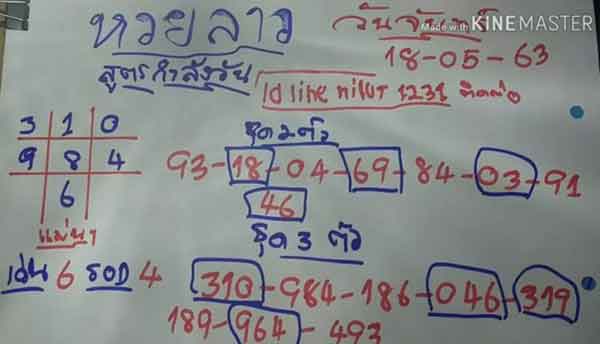 หวยลาว
วันจันทร์
Made with KINEMASTER
18-05-63
สูตรกำลังวัน
Id line nilut 1231 ติดต่อ
3 1 0
9 8 4
6
แม่นๆ
เด่น 6 รอง 4
ชุด 2 ตัว
93-18-04-69-84-03-91
46
ชุด 3 ตัว
310-984-186-046-319
189-964-493